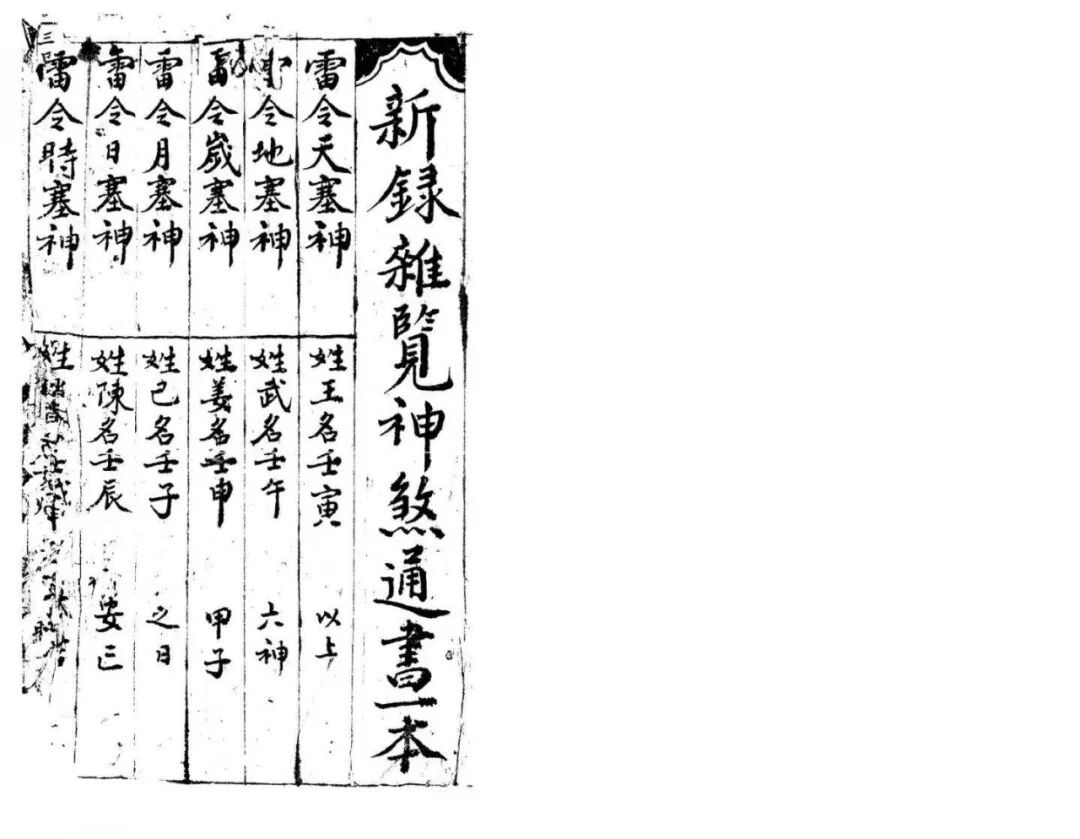 新録雜覽神煞通書一本
雷令天塞神 姓王名壬寅 以上
令地塞神 姓武名壬午 六神
雷令歲塞神 姓姜名壬申 甲子
雷令月塞神 姓己名壬子 之日
雷令日塞神 姓陳名壬辰 安㔾
雷令時塞神 姓